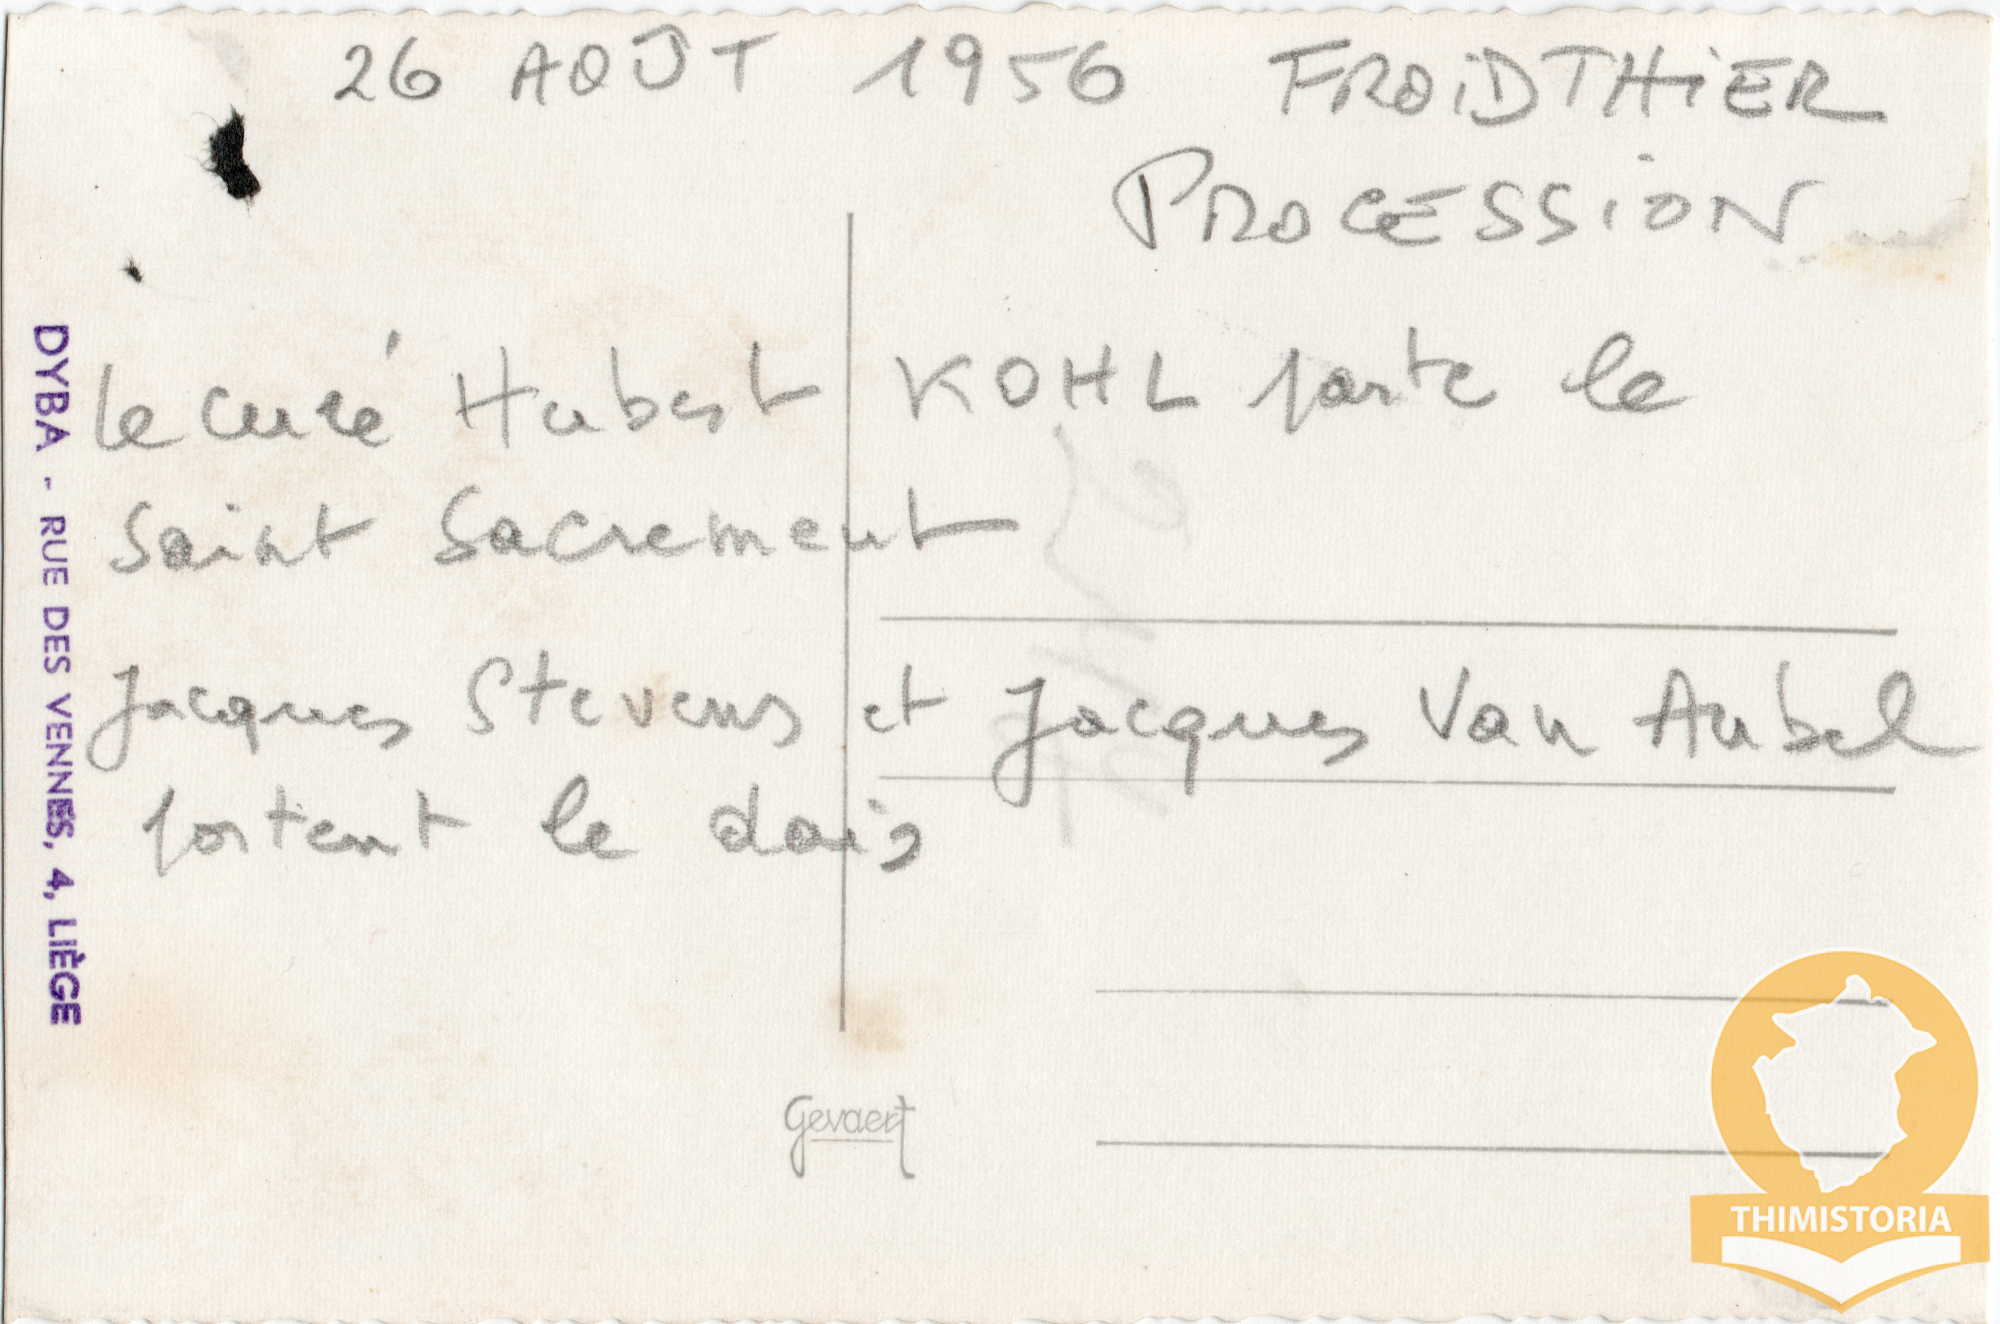 26 AOÛT 1956 FROIDTHIER
PROCESSION
Le curé Hubert KOHL porte le
Saint Sacrement
Jacques Stevens et Jacques Van Aubel
portent le dais
DYBA - RUE DES VENNES, 4, LIÈGE
Gevaert
THIMISTORIA